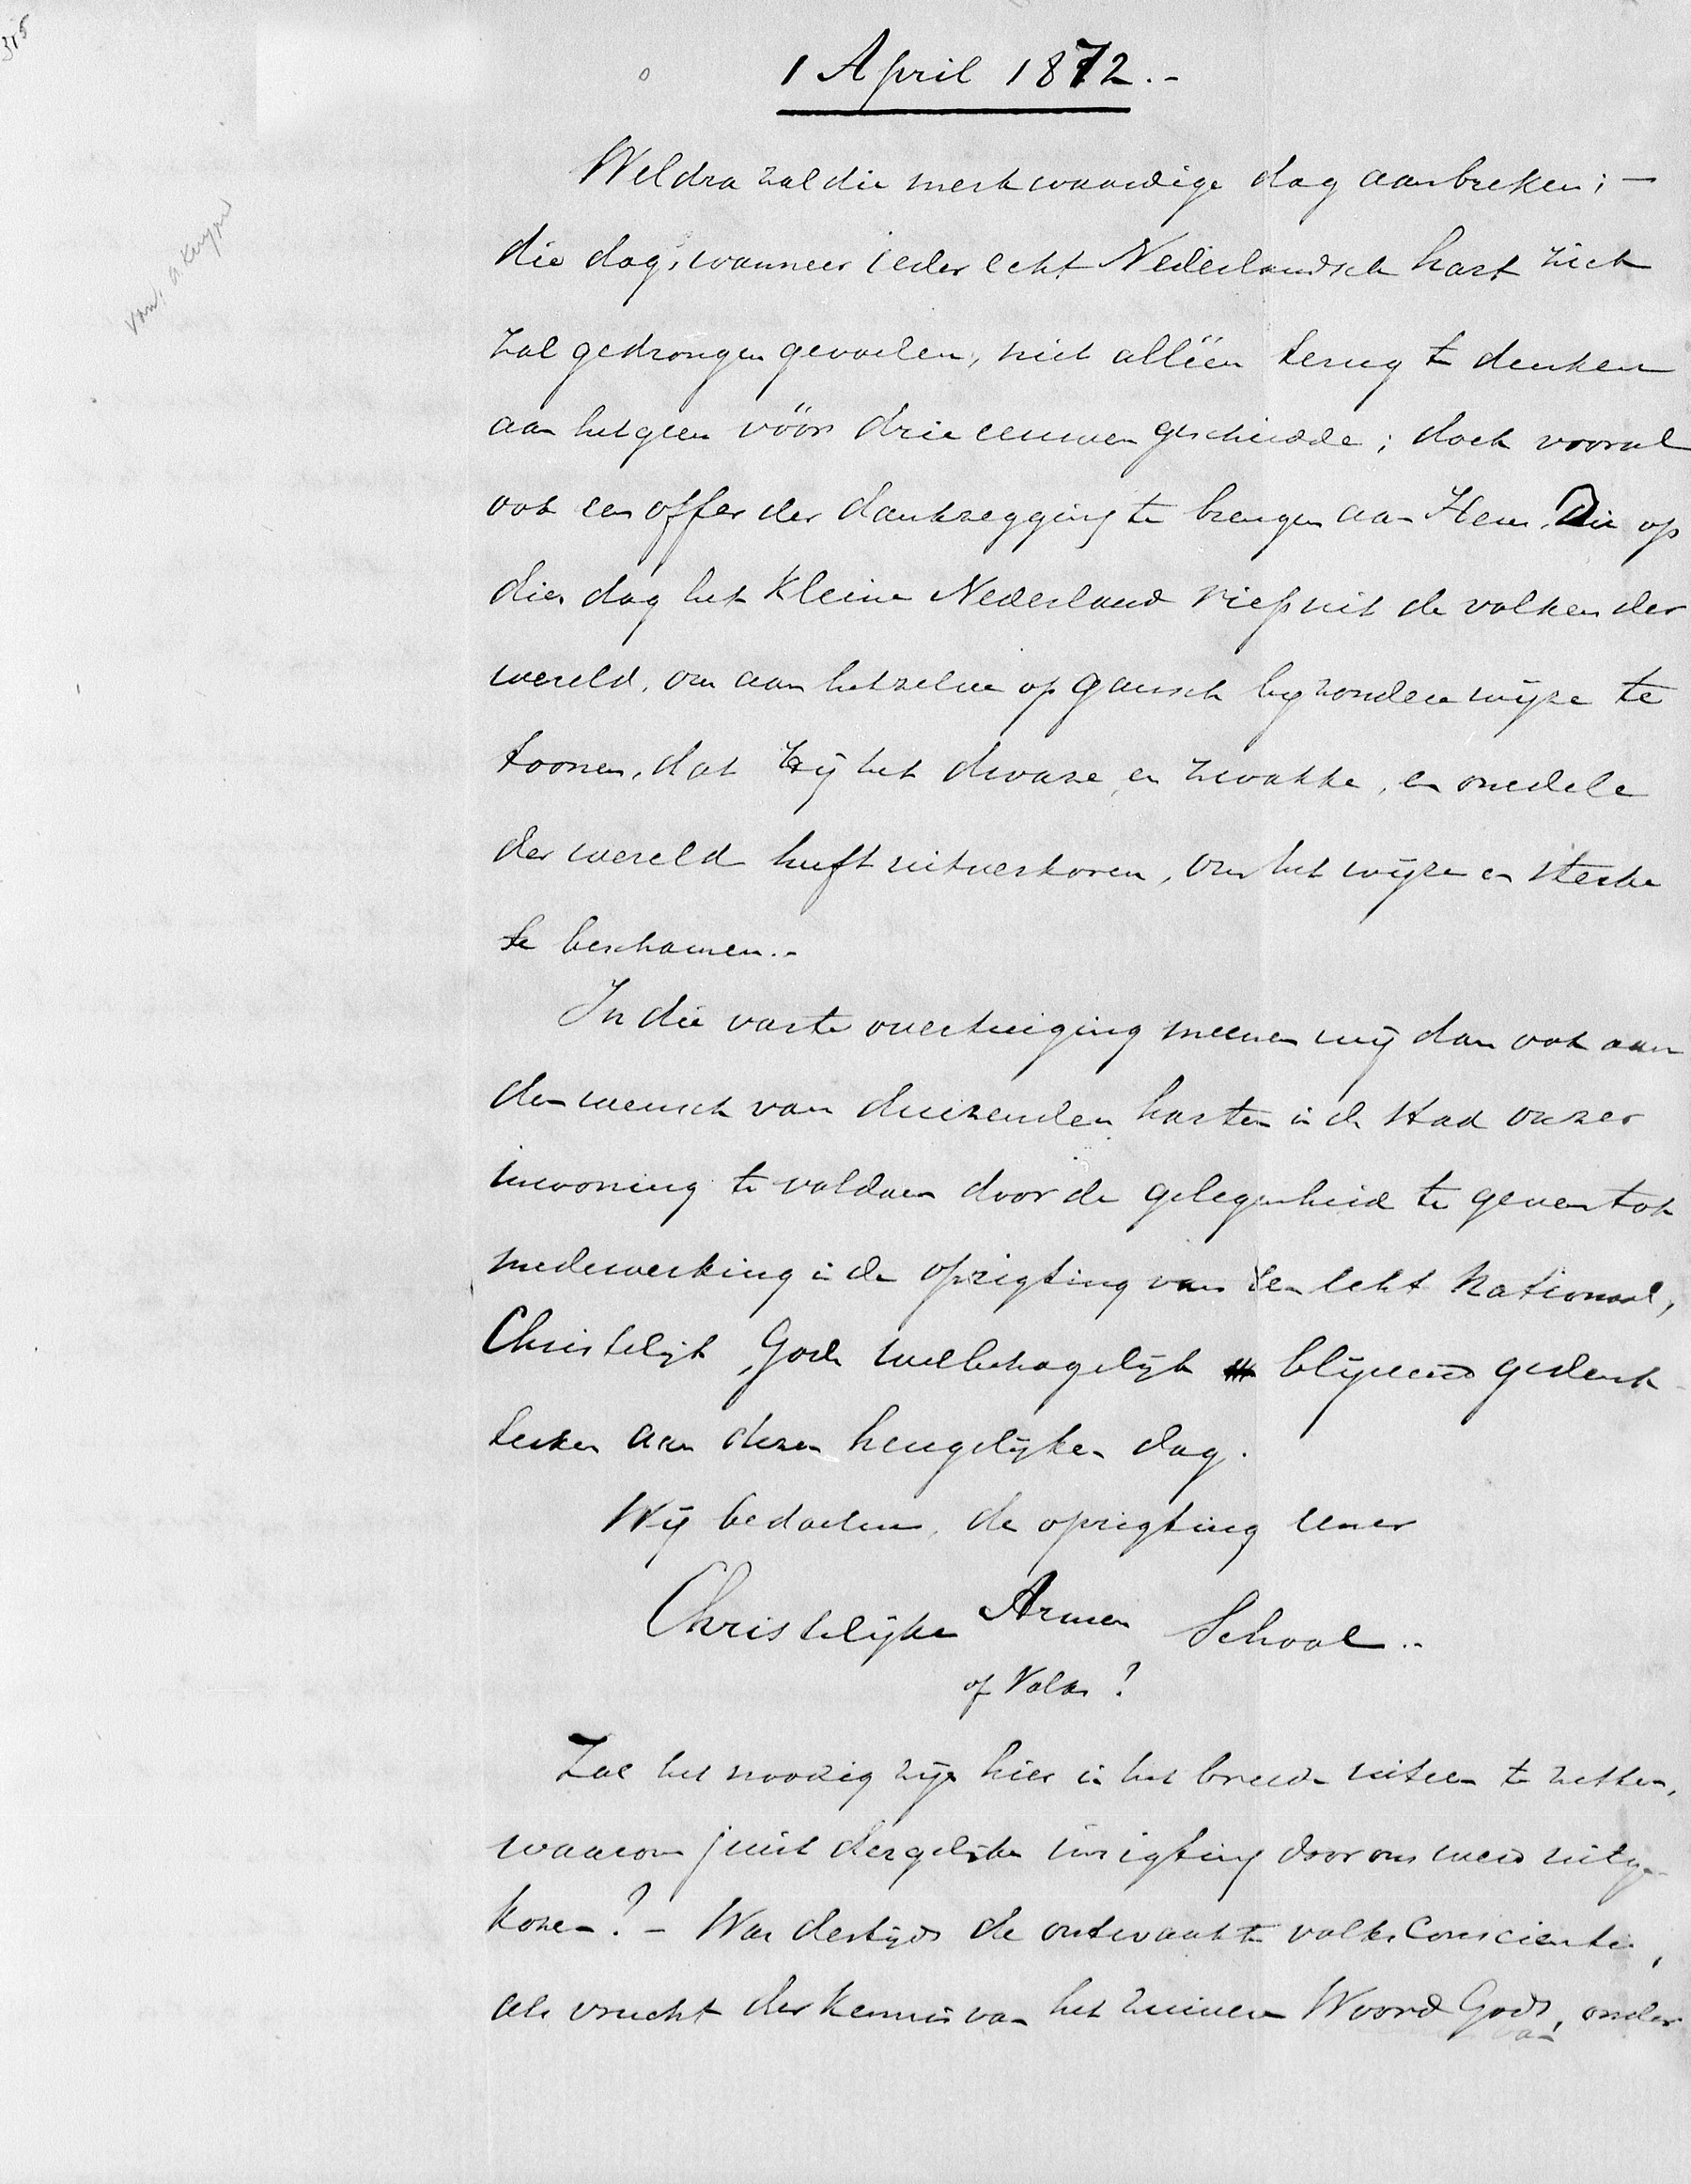 315
1 April 1872.-
van. a. Kuyper
Weldra zal die merkwaardige dag aanbreken; -
die dag, wanneer ieder echt Nederlandsch hart zich
zal gedrongen gevoelen, niet alléén terug te denken
aan hetgeen vóór drie eeuwen geschiedde; doch vooral
ook een offer der dankzegging te brengen aan Hem, Die op
dien dag het kleine Nederland riep uit de volken der
wereld, om aan hetzelve op gansch byzondere wijze te
toonen, dat Hij het dwaze, en zwakke, en onedele
der wereld heeft uitverkoren, om het wijze en sterke
te beschamen.-
In die vaste overtuiging meenen wij dan ook aan
den wensch van duizenden harten in de stad onzer
inwoning te voldoen door de gelegenheid te geven tot
medewerking in de oprigting van een echt Nationaal,
Christelijk, Gode welbehagelijk blijvend gedenk-
teeken aan dezen heugelijken dag.
Wij bedoelen, de oprigting eener
Christelijke Armen School.-
of Volks?
Zal het noodig zijn hier in het breede uiteen te zetten,
waarom juist dergelijke inrigting door ons werd uitge-
kozen? - Was destijds de ontwaakte volksconscientie,
als vrucht der kennis van het zuivere Woord Gods, onder
van